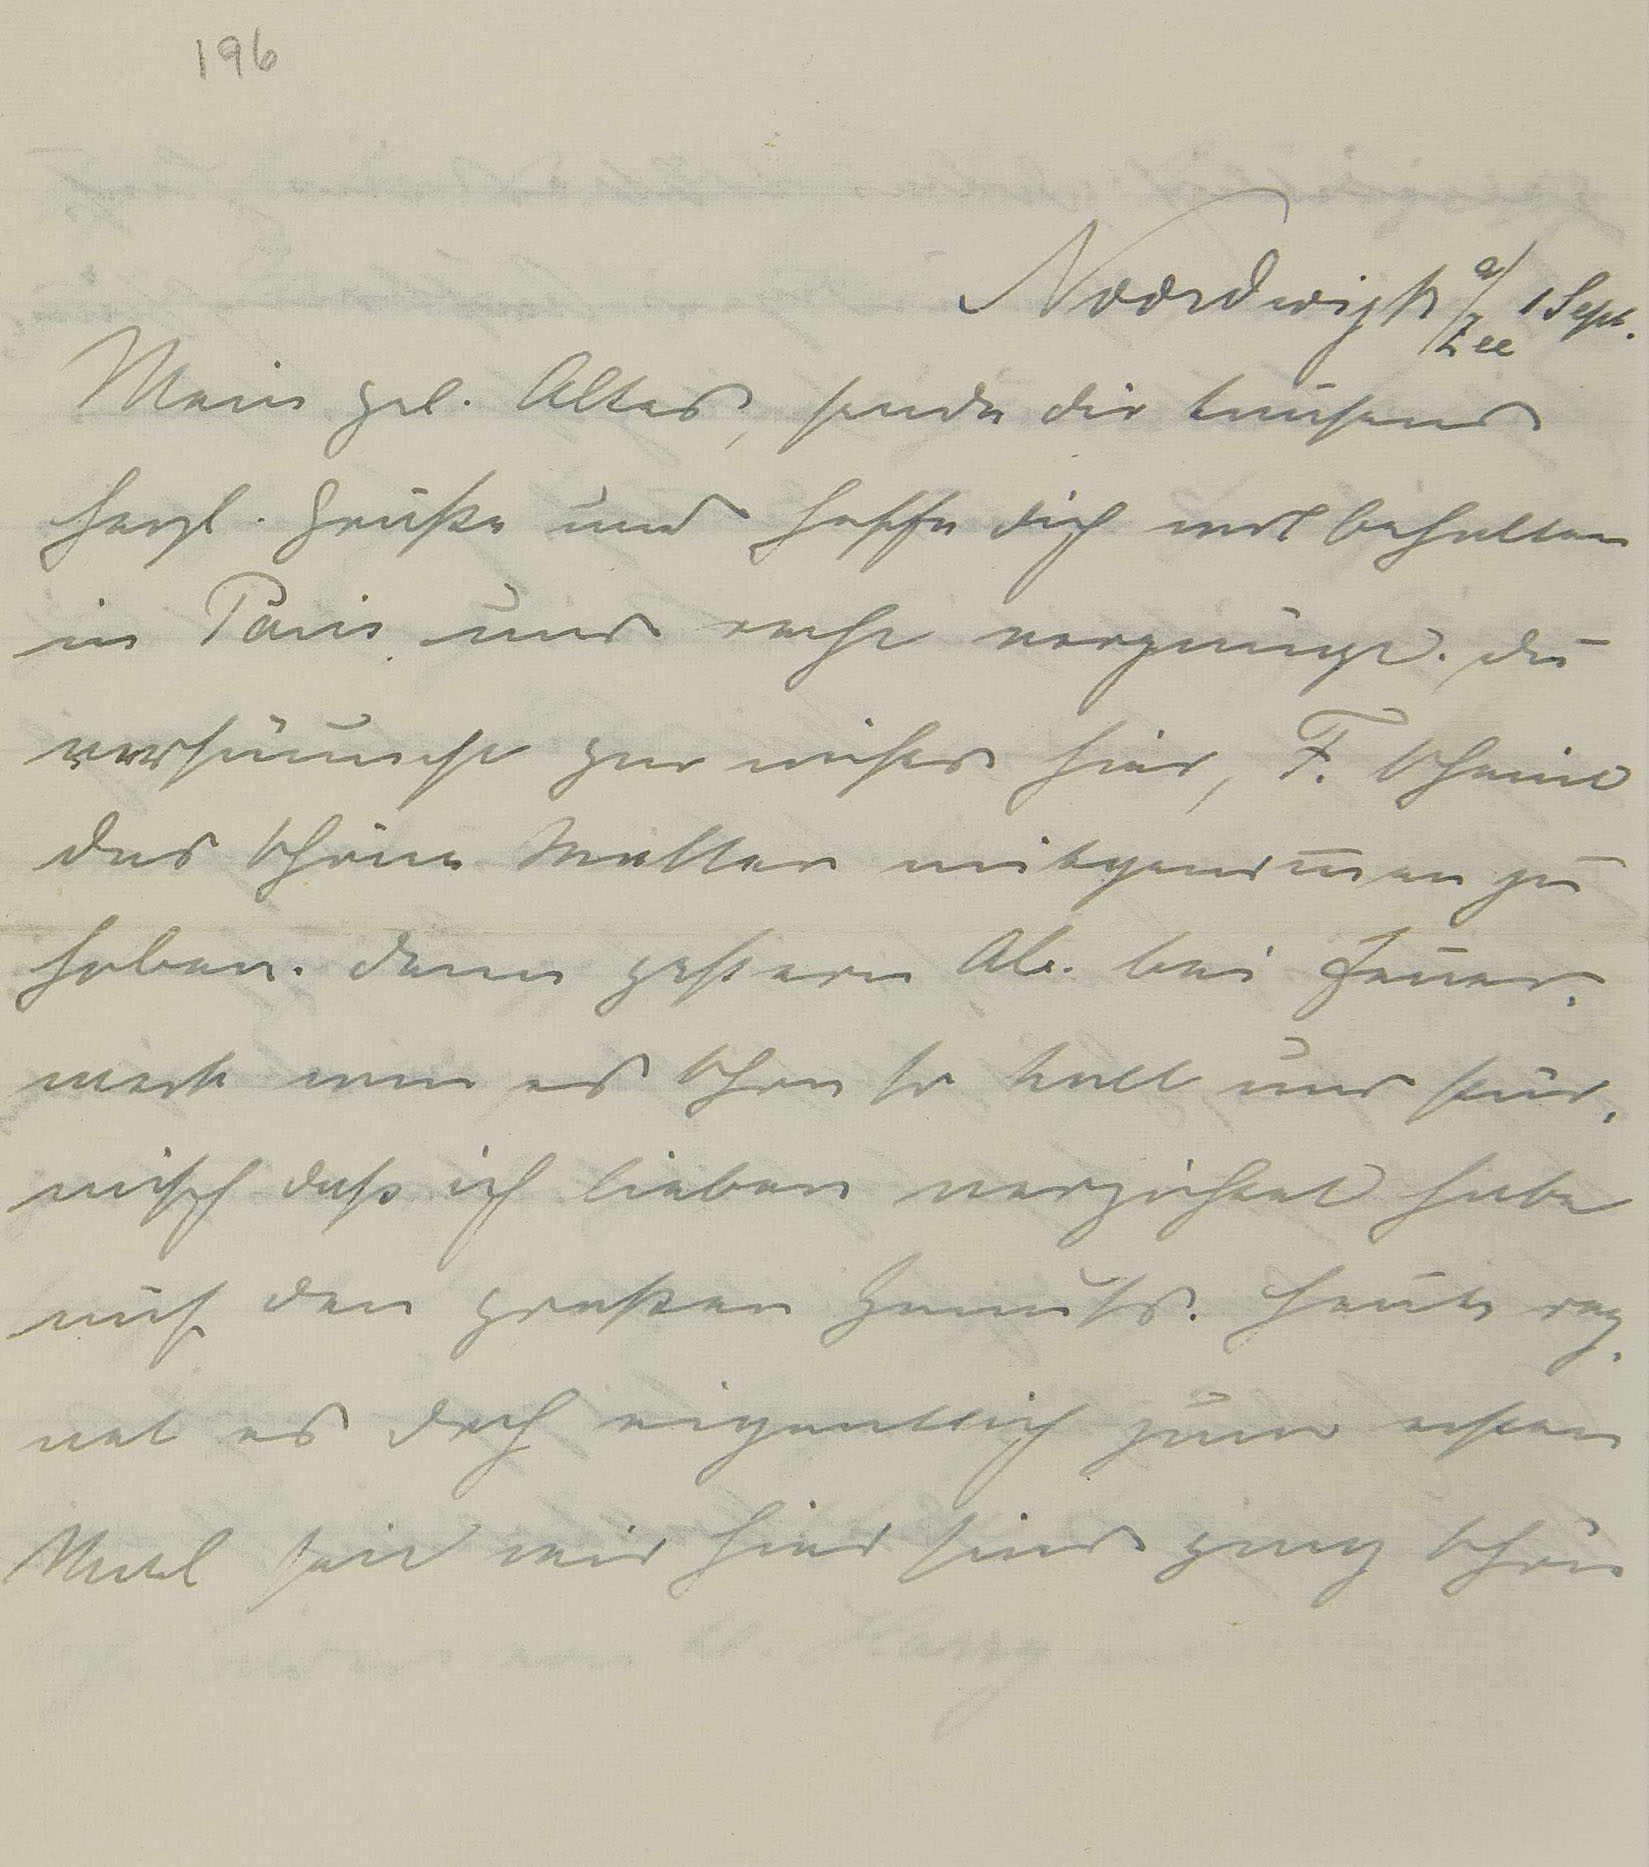 196
Noordwijk a/Zee 1 Sept.
Mein gel. Alterˢ, sende dir tausend
herzl. Grüße und hoffe dich wolbehalten
in Paris und recht vergnügt. du
versäumst gar nichts hier, F. scheint
das schöne Wetter mitgenom̄en zu
haben. denn gestern Ab. bei Feuer-
werk war es schon so kalt und stür-
misch daß ich lieber verzichtet habe
auf den großen Genuss. heute reg-
net es doch eigentlich zum ersten
Mal seit wir hier sind ganz schön